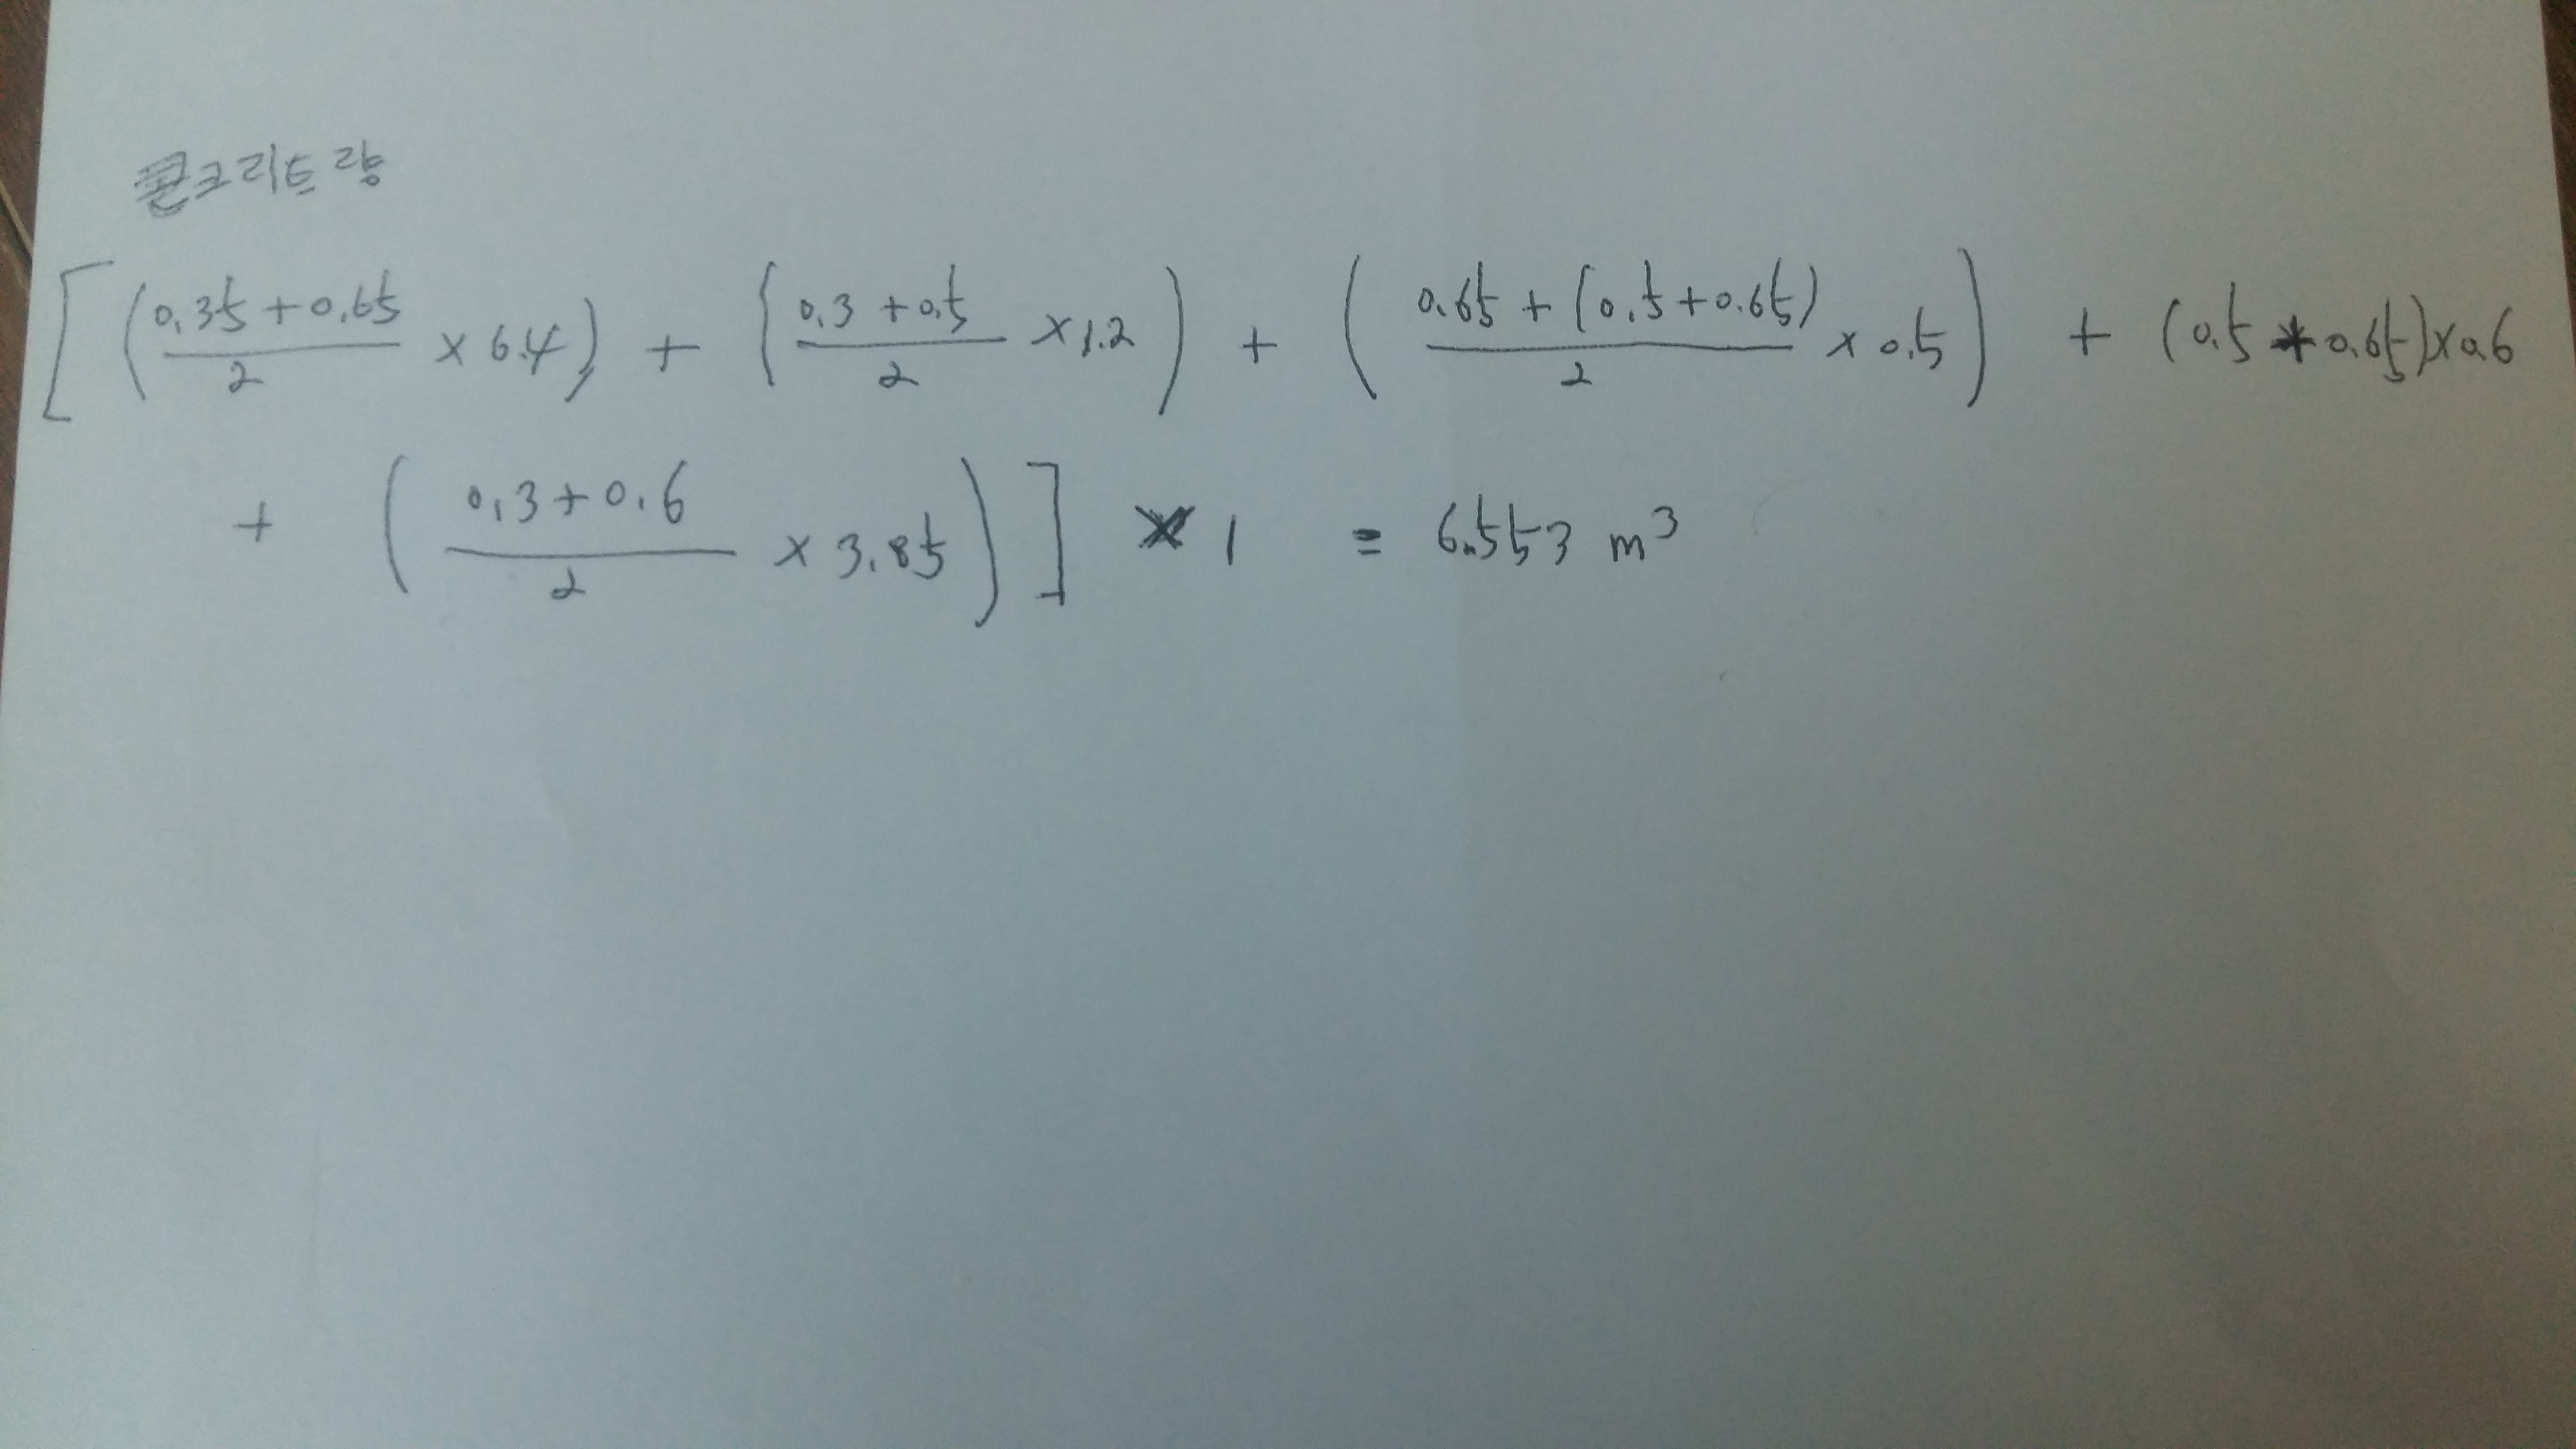 콘크리트량
[ ( (0.35+0.65)/2 × 6.4 ) + ( (0.3+0.5)/2 ×1.2 ) + ( (0.65+(0.5+0.65))/2 × 0.5 ) + (0.5+0.65)×0.6
+ ( (0.3+0.6)/2 × 3.85 ) ] × 1 = 6.553 m³